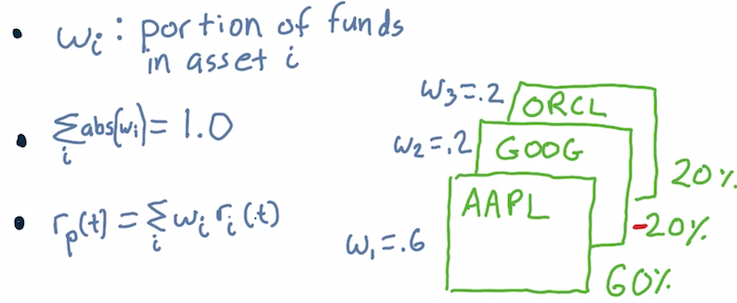 • wᵢ: portion of funds
in asset i
• Σᵢ abs(wᵢ) = 1.0
• rₚ(t) = Σᵢ wᵢ rᵢ(t)
w₃=.2 ORCL
w₂=.2 GOOG
20%
AAPL
-20%
w₁=.6
60%